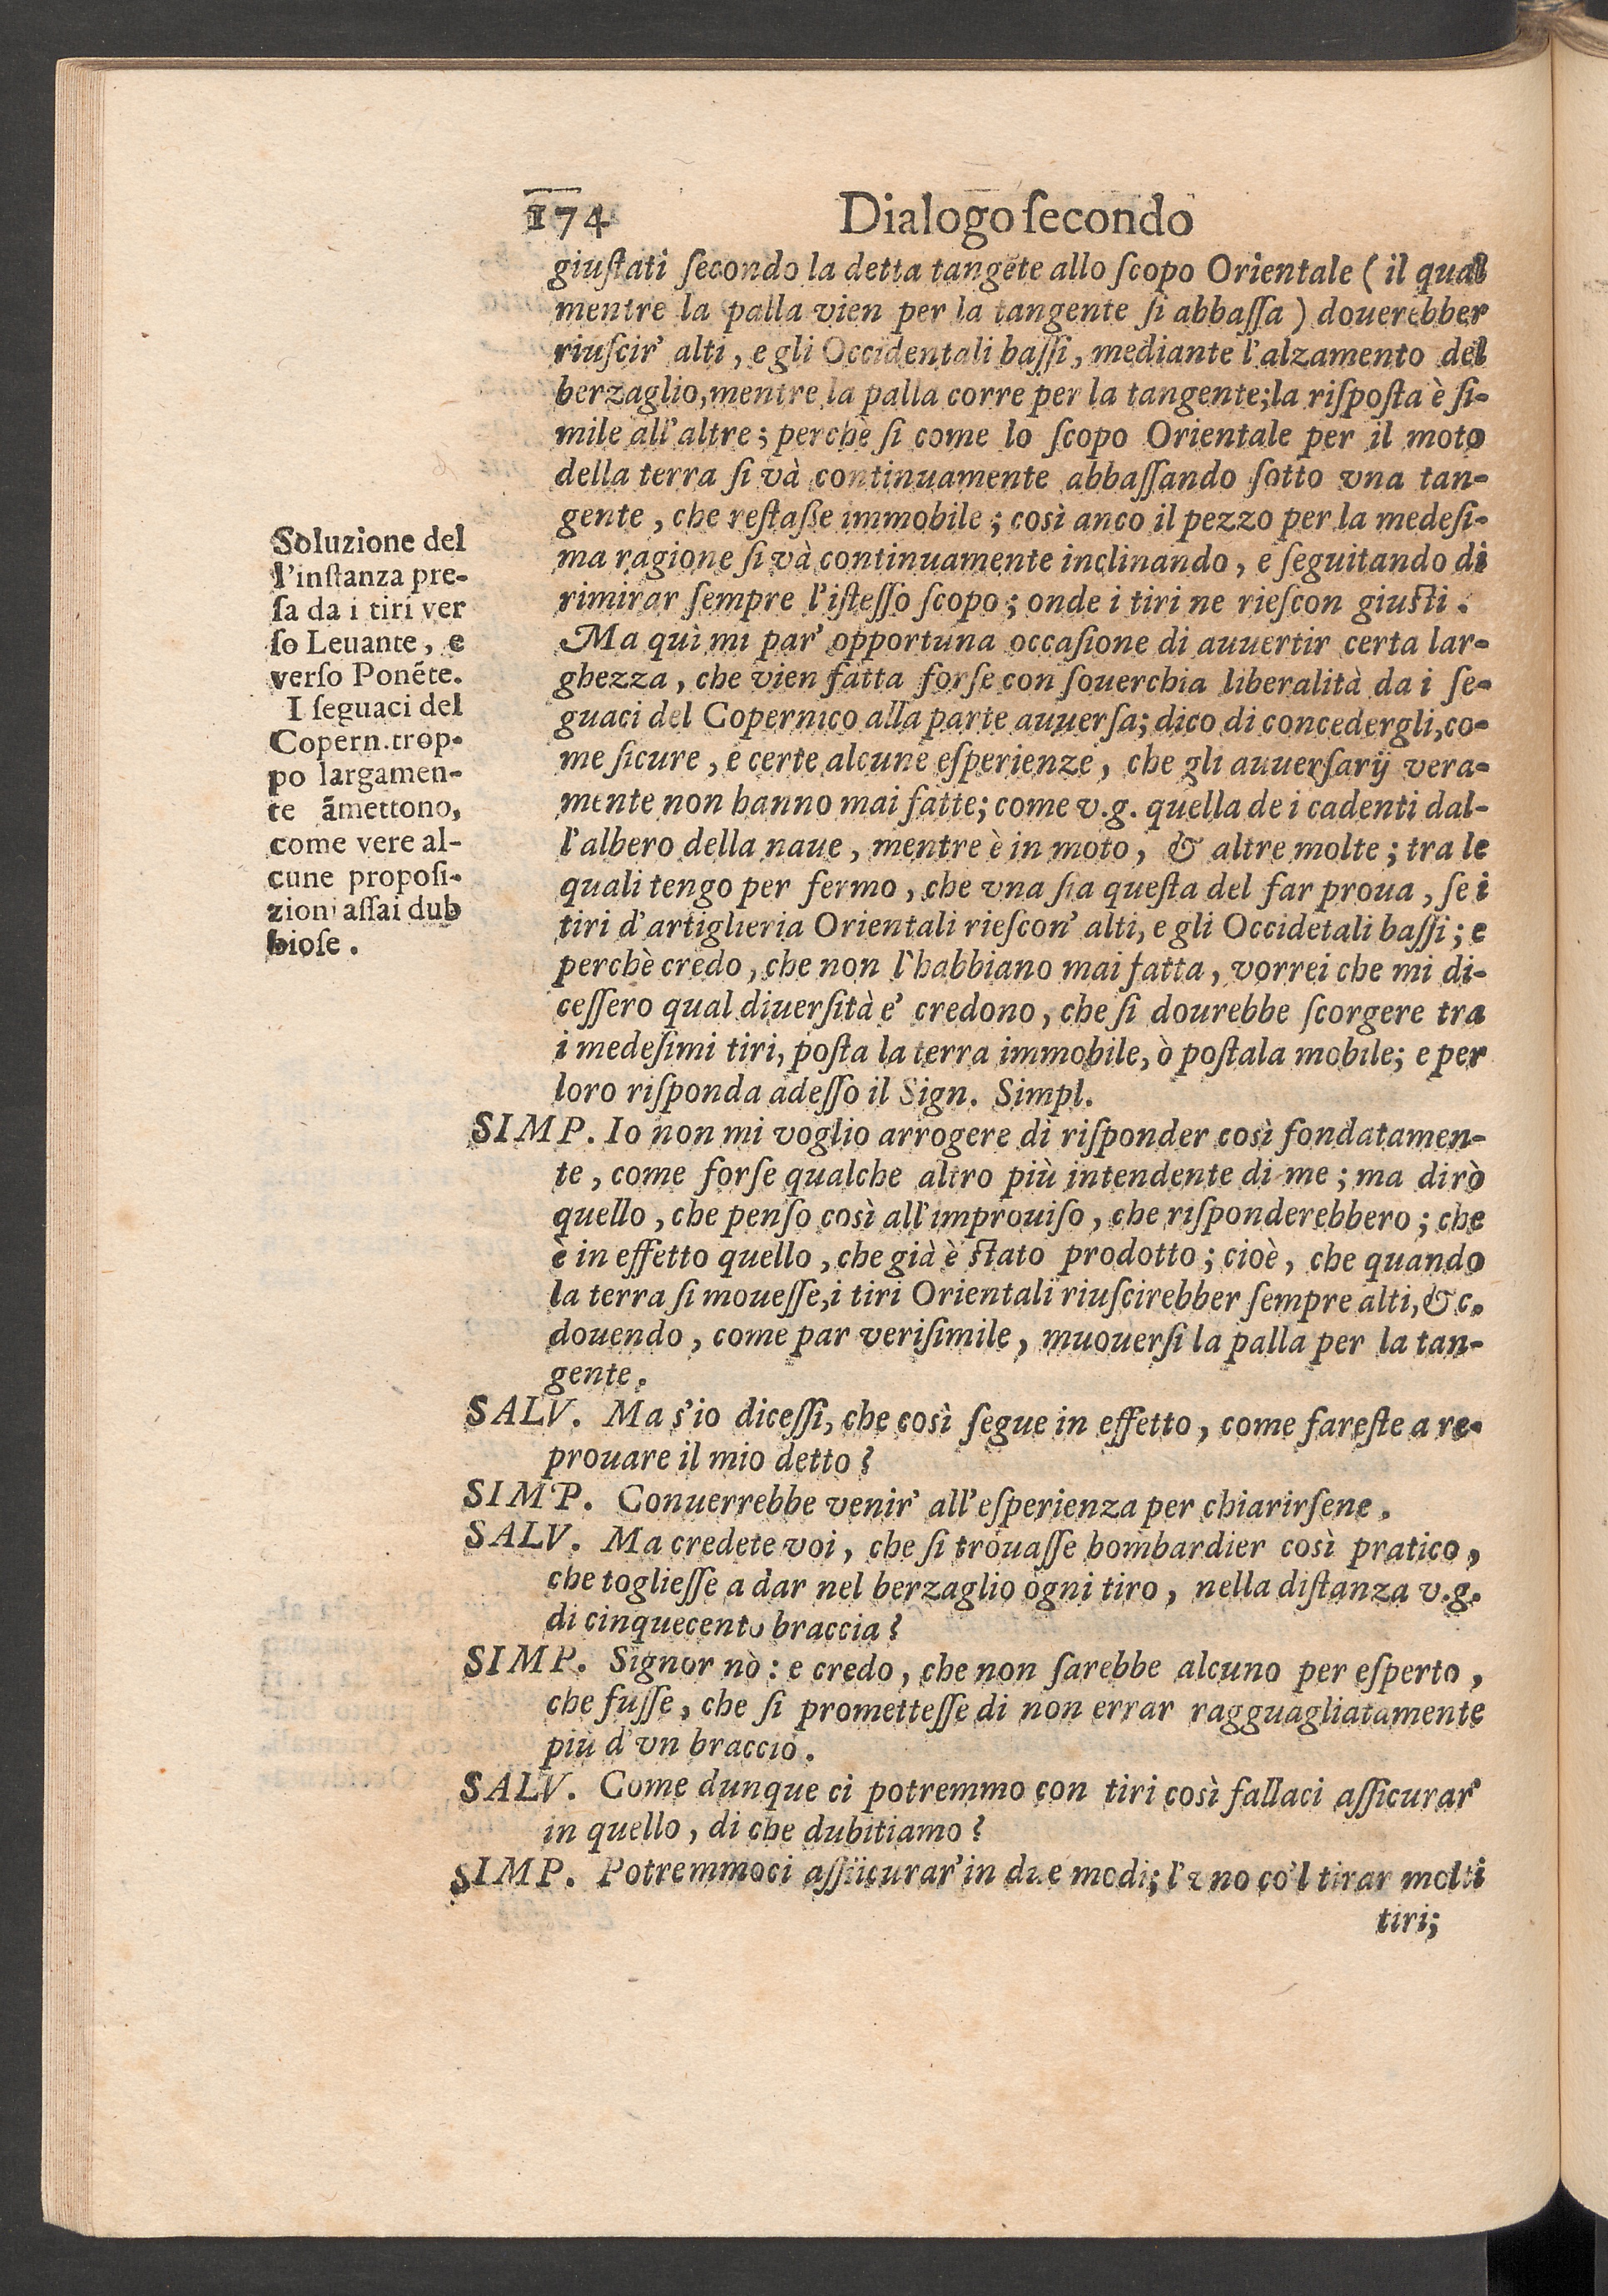 174 Dialogo ſecondo
giuſtati ſecondo la detta tangẽte allo ſcopo Orientale ( il qual
mentre la palla vien per la tangente ſi abbaſſa ) douerebber
riuſcir' alti, e gli Occidentali baſſi, mediante l'alzamento del
berzaglio, mentre la palla corre per la tangente; la riſpoſta è ſi-
mile all'altre; perchè ſi come lo ſcopo Orientale per il moto
della terra ſi và continuamente abbaſſando ſotto vna tan-
gente, che reſtaſſe immobile; così anco il pezzo per la medeſi-
ma ragione ſi và continuamente inclinando, e ſeguitando di
rimirar ſempre l'iſteſſo ſcopo; onde i tiri ne rieſcon giuſti.
Ma quì mi par' opportuna occaſione di auuertir certa lar-
ghezza, che vien fatta forſe con ſouerchia liberalità da i ſe-
guaci del Copernico alla parte auuerſa; dico di concedergli, co-
me ſicure, e certe alcune eſperienze, che gli auuerſarij vera-
mente non hanno mai fatte; come v.g. quella de i cadenti dal-
l'albero della naue, mentre è in moto, & altre molte; tra le
quali tengo per fermo, che vna ſia queſta del far proua, ſe i
tiri d'artiglieria Orientali rieſcon' alti, e gli Occidetali baſſi; e
perchè credo, che non l'habbiano mai fatta, vorrei che mi di-
ceſſero qual diuerſità e' credono, che ſi dourebbe ſcorgere tra
i medeſimi tiri, poſta la terra immobile, ò poſtala mobile; e per
loro riſponda adeſſo il Sign. Simpl.
Soluzione del
l'inſtanza pre-
ſa da i tiri ver
ſo Leuante, e
verſo Ponẽte.
I ſeguaci del
Copern. trop-
po largamen-
te ãmettono,
come vere al-
cune propoſi-
zioni aſſai dub
bioſe.
SIMP. Io non mi voglio arrogere di riſponder così fondatamen-
te, come forſe qualche altro più intendente di me; ma dirò
quello, che penſo così all'improuiſo, che riſponderebbero; che
è in effetto quello, che già è ſtato prodotto; cioè, che quando
la terra ſi moueſſe, i tiri Orientali riuſcirebber ſempre alti, &c.
douendo, come par veriſimile, muouerſi la palla per la tan-
gente.
SALV. Ma s'io diceſſi, che così ſegue in effetto, come fareſte a re-
prouare il mio detto?
SIMP. Conuerrebbe venir' all'eſperienza per chiarirſene.
SALV. Ma credete voi, che ſi trouaſſe bombardier così pratico,
che toglieſſe a dar nel berzaglio ogni tiro, nella diſtanza v.g.
di cinquecento braccia?
SIMP. Signor nò: e credo, che non ſarebbe alcuno per eſperto,
che fuſſe, che ſi prometteſſe di non errar ragguagliatamente
più d'vn braccio.
SALV. Come dunque ci potremmo con tiri così fallaci aſſicurar'
in quello, di che dubitiamo?
SIMP. Potremmoci aſſiicurar' in due modi; l'vno co'l tirar molti
tiri;